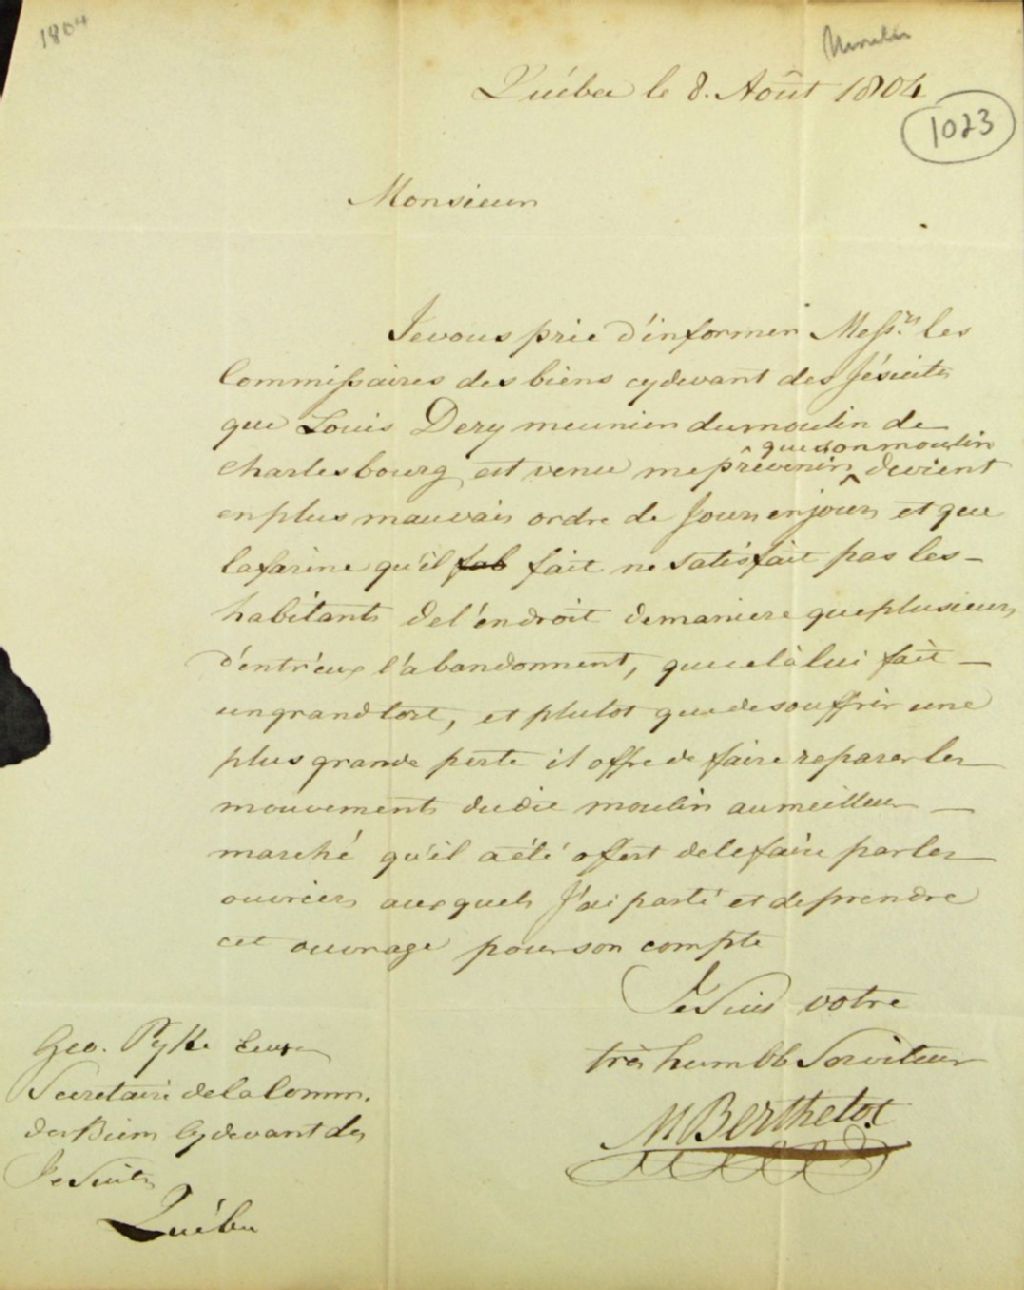 1804
Moulin
Québec le 8. Août 1804
1023
Monsieur
Je vous prie d'informer Messrs. les
Commissaires des biens cydevant des Jésuites
que Louis Dery meunier du moulin de
que son moulin
Charlesbourg est venu me prévenir ^ devient
en plus mauvais ordre de Jours en jours et que
la farine qu'il fab fait ne satisfait pas les
habitants de l'éndroit de maniere que plusieurs
d'entr'eux l'abandonnent, que celà lui fait
un grand tort, et plutot que de souffrir une
plus grande perte il offre de faire reparer les
mouvements dudit moulin au meilleur
marché qu'il a été offert de le faire par les
ouvriers auxquels J'ai parlé et de prendre
cet ouvrage pour son compte
Je Suis votre
très humble Serviteur
M Berthelot
Geo. Pyke
Secretaire de la Comm.
des Biens Cydevant des
Jesuites
Québec